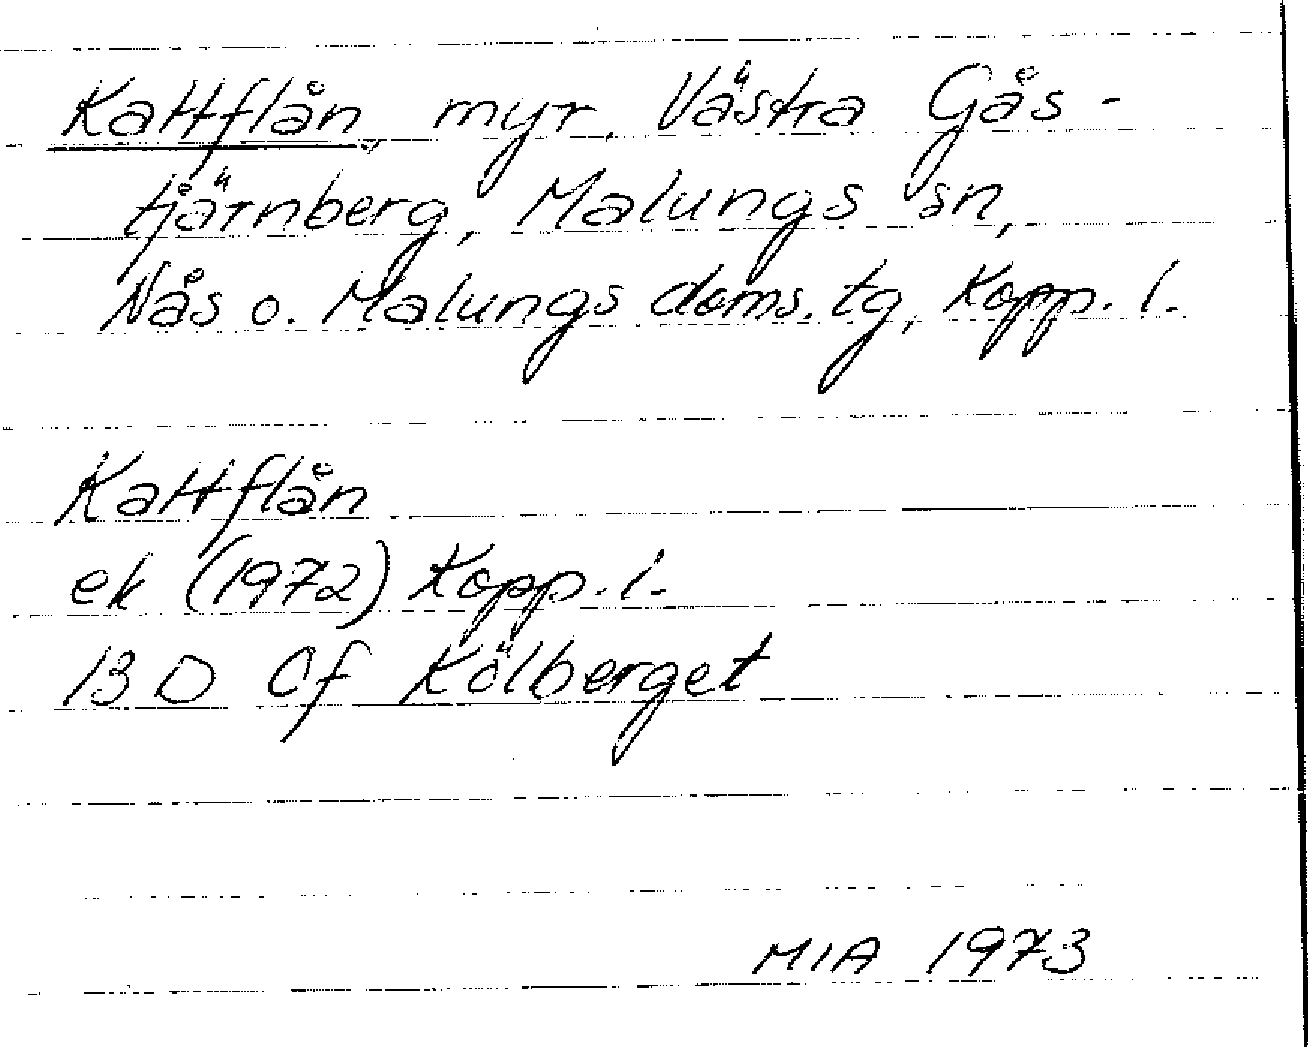 Kattflån, myr, Västra Gås-
tjärnberg, Malungs sn,
Nås o. Malungs doms. tg, Kopp. l.
Kattflån
ek (1972) Kopp. l.
13 D Cf Kölberget
MIA 1973